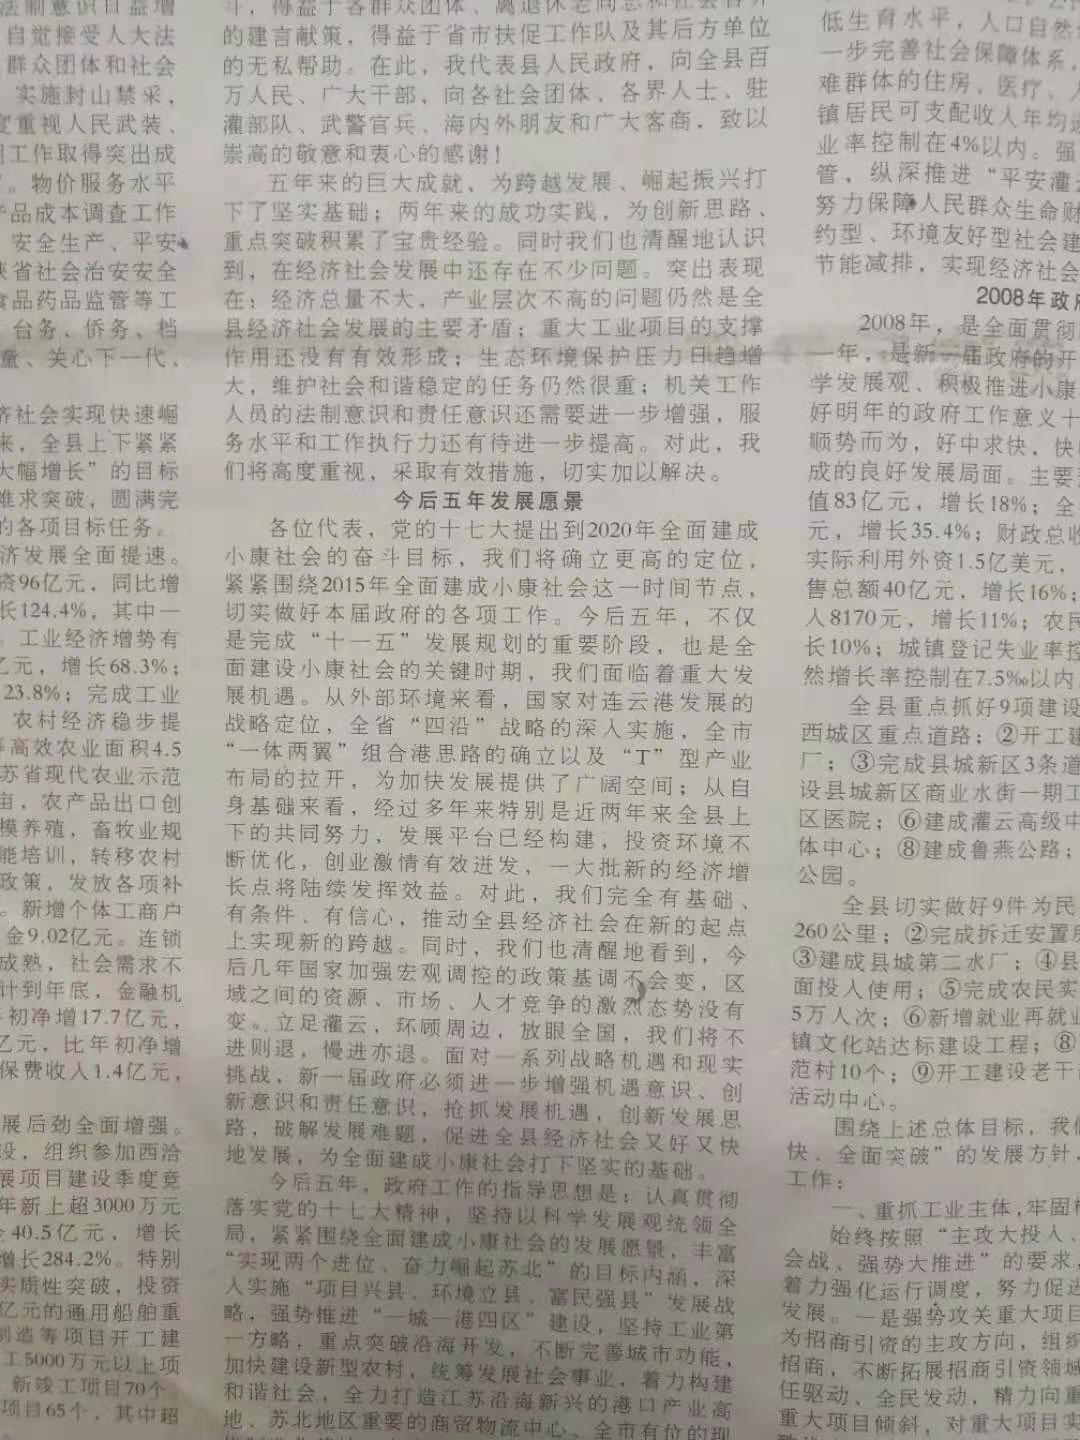 法制意识日益增
自觉接受人大法
群众团体和社会
实施封山禁采，
度重视人民武装、
工作取得突出成
。物价服务水平
产品成本调查工作
安全生产、平安
省社会治安安全
食品药品监管等工
台务、侨务、档
童、关心下一代、
济社会实现快速崛
来，全县上下紧紧
大幅增长”的目标
难求突破，圆满完
的各项目标任务。
济发展全面提速。
资96亿元，同比增
长124.4%，其中一
。工业经济增势有
亿元，增长68.3%；
23.8%；完成工业
农村经济稳步提
高效农业面积4.5
苏省现代农业示范
亩，农产品出口创
模养殖，畜牧业规
能培训，转移农村
政策，发放各项补
。新增个体工商户
金9.02亿元。连锁
成熟，社会需求不
计到年底，金融机
初净增17.7亿元，
亿元，比年初净增
保费收入1.4亿元，
展后劲全面增强。
设，组织参加西洽
展项目建设季度竞
年新上超3000万元
金40.5亿元，增长
增长284.2%。特别
实质性突破，投资
亿元的通用船舶重
制造等项目开工建
工5000万元以上项
新竣工项目70个，
项目65个，其中超
斗，得益于各群众团体、离退休老同志和社会各界
的建言献策，得益于省市扶促工作队及其后方单位
的无私帮助。在此，我代表县人民政府，向全县百
万人民、广大干部，向各社会团体、各界人士、驻
灌部队、武警官兵、海内外朋友和广大客商，致以
崇高的敬意和衷心的感谢！
五年来的巨大成就，为跨越发展、崛起振兴打
下了坚实基础；两年来的成功实践，为创新思路、
重点突破积累了宝贵经验。同时我们也清醒地认识
到，在经济社会发展中还存在不少问题。突出表现
在：经济总量不大，产业层次不高的问题仍然是全
县经济社会发展的主要矛盾；重大工业项目的支撑
作用还没有有效形成；生态环境保护压力日趋增
大，维护社会和谐稳定的任务仍然很重；机关工作
人员的法制意识和责任意识还需要进一步增强，服
务水平和工作执行力还有待进一步提高。对此，我
们将高度重视，采取有效措施，切实加以解决。
今后五年发展愿景
各位代表，党的十七大提出到2020年全面建成
小康社会的奋斗目标，我们将确立更高的定位，
紧紧围绕2015年全面建成小康社会这一时间节点，
切实做好本届政府的各项工作。今后五年，不仅
是完成“十一五”发展规划的重要阶段，也是全
面建设小康社会的关键时期，我们面临着重大发
展机遇。从外部环境来看，国家对连云港发展的
战略定位，全省“四沿”战略的深入实施，全市
“一体两翼”组合港思路的确立以及“T”型产业
布局的拉开，为加快发展提供了广阔空间；从自
身基础来看，经过多年来特别是近两年来全县上
下的共同努力，发展平台已经构建，投资环境不
断优化，创业激情有效迸发，一大批新的经济增
长点将陆续发挥效益。对此，我们完全有基础、
有条件、有信心，推动全县经济社会在新的起点
上实现新的跨越。同时，我们也清醒地看到，今
后几年国家加强宏观调控的政策基调不会变，区
域之间的资源、市场、人才竞争的激烈态势没有
变。立足灌云，环顾周边，放眼全国，我们将不
进则退，慢进亦退。面对一系列战略机遇和现实
挑战，新一届政府必须进一步增强机遇意识、创
新意识和责任意识，抢抓发展机遇，创新发展思
路，破解发展难题，促进全县经济社会又好又快
地发展，为全面建成小康社会打下坚实的基础。
今后五年，政府工作的指导思想是：认真贯彻
落实党的十七大精神，坚持以科学发展观统领全
局，紧紧围绕全面建成小康社会的发展愿景，丰富
“实现两个进位、奋力崛起苏北”的目标内涵，深
入实施“项目兴县、环境立县、富民强县”发展战
略，强势推进“一城一港四区”建设，坚持工业第
一方略，重点突破沿海开发，不断完善城市功能，
加快建设新型农村，统筹发展社会事业，着力构建
和谐社会，全力打造江苏沿海新兴的港口产业高
地、苏北地区重要的商贸物流中心、全市有位的现
低生育水平，人口自然
一步完善社会保障体系，
难群体的住房、医疗、人
镇居民可支配收入年均
业率控制在4%以内。强
管，纵深推进“平安灌云
努力保障人民群众生命财
约型、环境友好型社会建
节能减排，实现经济社会
2008年政府
2008年，是全面贯彻
一年，是新一届政府的开
学发展观、积极推进小康
好明年的政府工作意义十
顺势而为，好中求快，快
成的良好发展局面。主要
值83亿元，增长18%；全
元，增长35.4%；财政总收
实际利用外资1.5亿美元，
售总额40亿元，增长16%；
人8170元，增长11%；农民
长10%；城镇登记失业率控
然增长率控制在7.5‰以内
全县重点抓好9项建设
西城区重点道路；②开工建
厂；③完成县城新区3条道
设县城新区商业水街一期工
区医院；⑥建成灌云高级中
体中心；⑧建成鲁燕公路；
公园。
全县切实做好9件为民
260公里；②完成拆迁安置房
③建成县城第二水厂；④县
面投入使用；⑤完成农民实
5万人次；⑥新增就业再就业
镇文化站达标建设工程；⑧
范村10个；⑨开工建设老干部
活动中心。
围绕上述总体目标，我们
快、全面突破”的发展方针，
工作：
一、重抓工业主体，牢固
始终按照“主攻大投入、
会战、强势大推进”的要求，
着力强化运行调度，努力促进
发展。一是强势攻关重大项目
为招商引资的主攻方向，组织
招商，不断拓展招商引资领域
任驱动、全民发动，精力向重
重大项目倾斜，对重大项目实